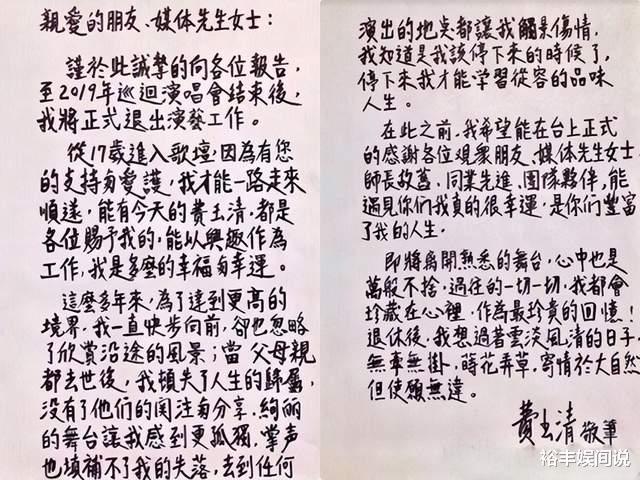 親愛的朋友、媒体先生女士：
謹於此誠摯的向各位報告，
至2019年巡迴演唱會結束後，
我將正式退出演藝工作。
從17歲進入歌壇，因為有您
的支持與愛護，我才能一路走來
順遂，能有今天的費玉清，都是
各位賜予我的，能以興趣作為
工作，我是多麼的幸福與幸運。
這麼多年來，為了達到更高的
境界，我一直快步向前，卻也忽略
了欣賞沿途的風景；當父母親
都去世後，我頓失了人生的歸屬，
沒有了他們的関注與分享，絢麗
的舞台讓我感到更孤獨，掌声
也填補不了我的失落，去到任何
演出的地点都讓我觸景傷情，
我知道是我該停下來的時候了，
停下來我才能学習從容的品味
人生。
在此之前，我希望能在台上正式
的感謝各位观眾朋友、媒体先生女士、
師長故舊、同業先進、團隊夥伴，能
遇見你們我真的很幸運，是你們豐富
了我的人生。
即將離開熟悉的舞台，心中也是
萬般不捨，過往的一切一切，我都會
珍藏在心裡，作為最珍貴的回憶！
退休後，我想過著雲淡風清的日子，
無牽無掛，蒔花弄草，寄情於大自然
但使願無違。
費玉清 敬筆
裕丰娱间说